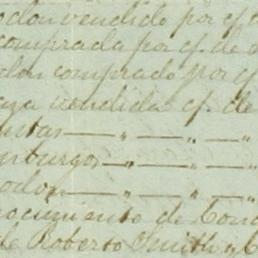 odon vendido por cf. d
comprada por cf. de d
don comprado por cf
aya vendida cf. de
untas — " — — "
mburgos — " — — "
odon — " — — "
ocumiento de Cono
de Roberto Smith y C